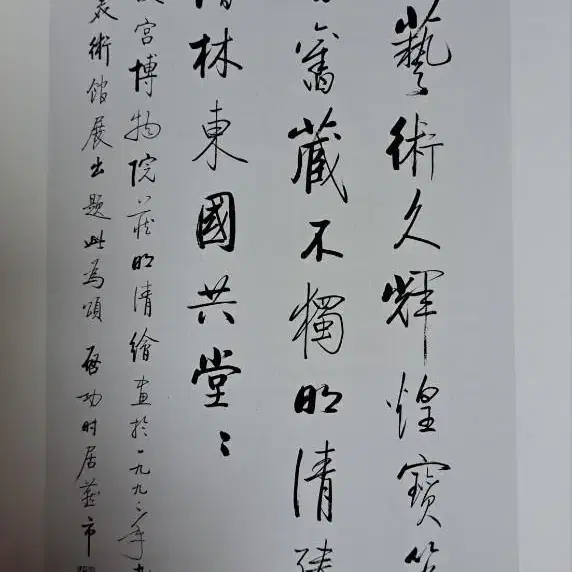 藝術久輝煌寶笈
舊藏不獨明清
林東國共堂〻
宮博物院藏明清繪畫於一九九二年
美術館展出題此為頌 啟功時居燕市